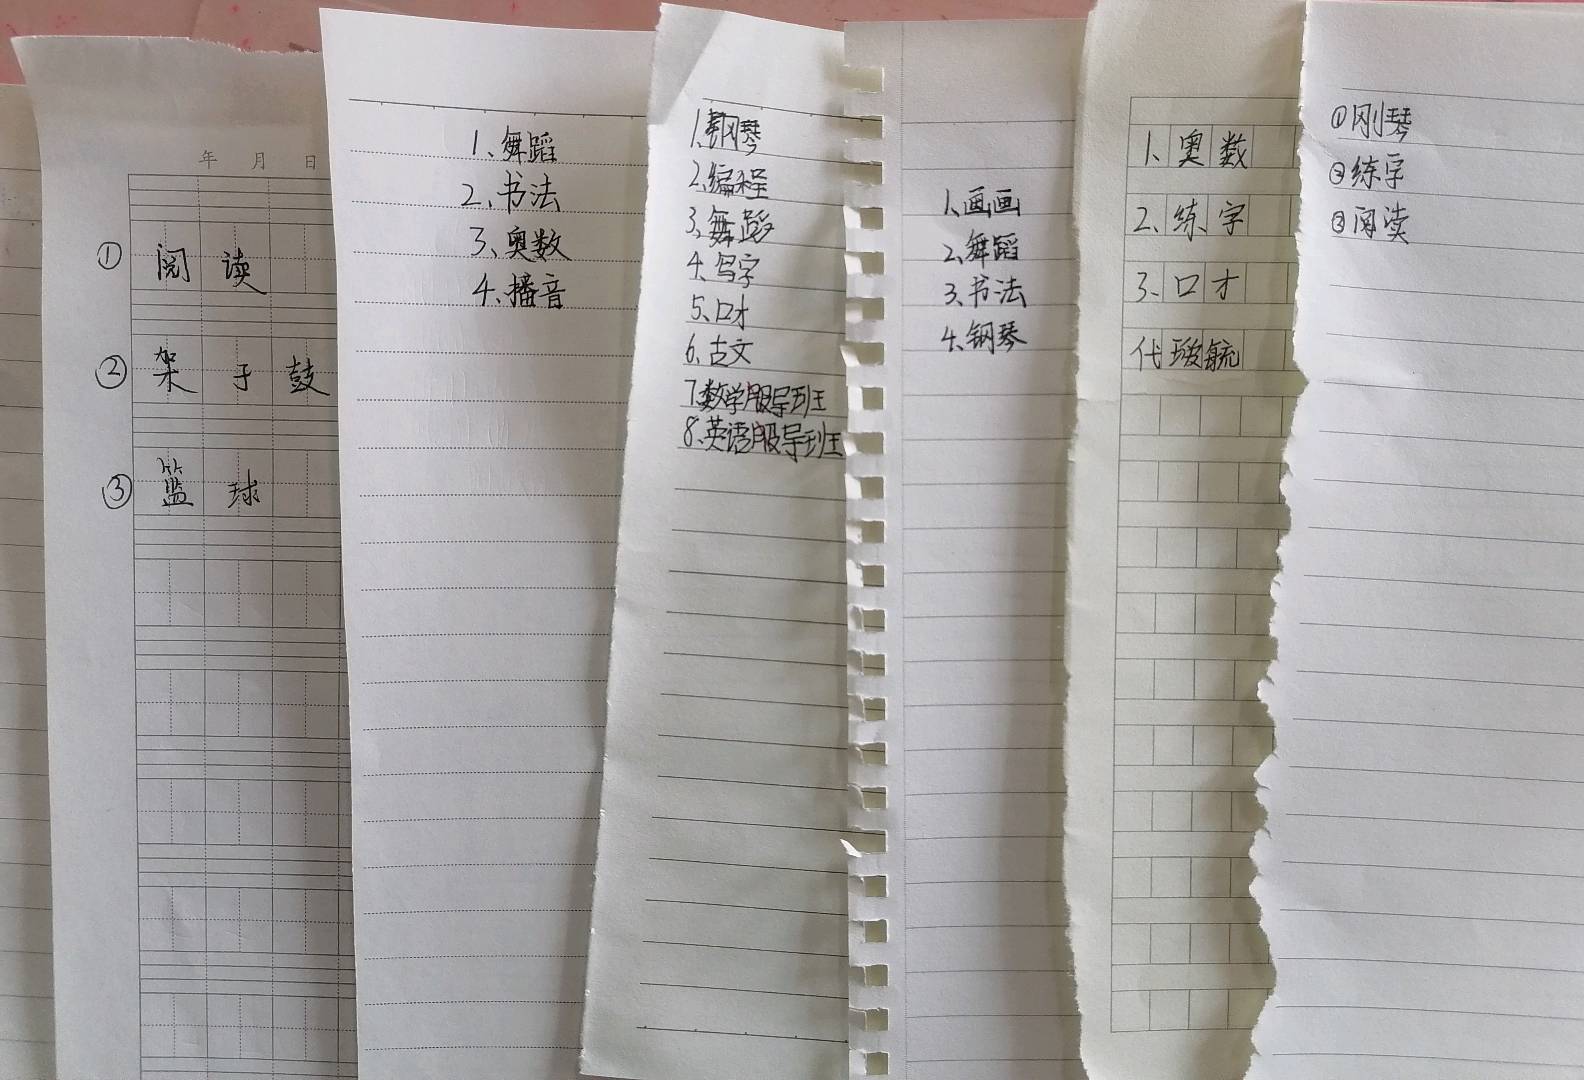 年 月 日
① 阅读
② 架子鼓
③ 篮球
1、舞蹈
2、书法
3、奥数
4、播音
1、钢琴
2、编程
3、舞蹈
4、写字
5、口才
6、古文
7、数学服导班
8、英语服导班
1、画画
2、舞蹈
3、书法
4、钢琴
1、奥数
2、练字
3、口才
①刚琴
②练字
③阅读